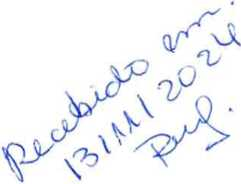 Recebido em:
13/11/2024